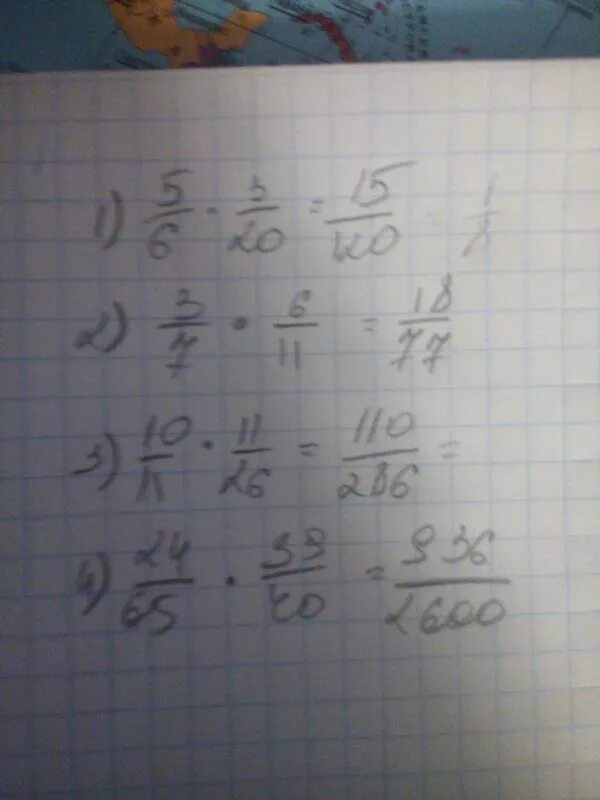 1) 5/6 · 3/20 = 15/120 = 1/8
2) 3/7 · 6/11 = 18/77
3) 10/11 · 11/26 = 110/286 =
4) 24/65 · 39/40 = 936/2600